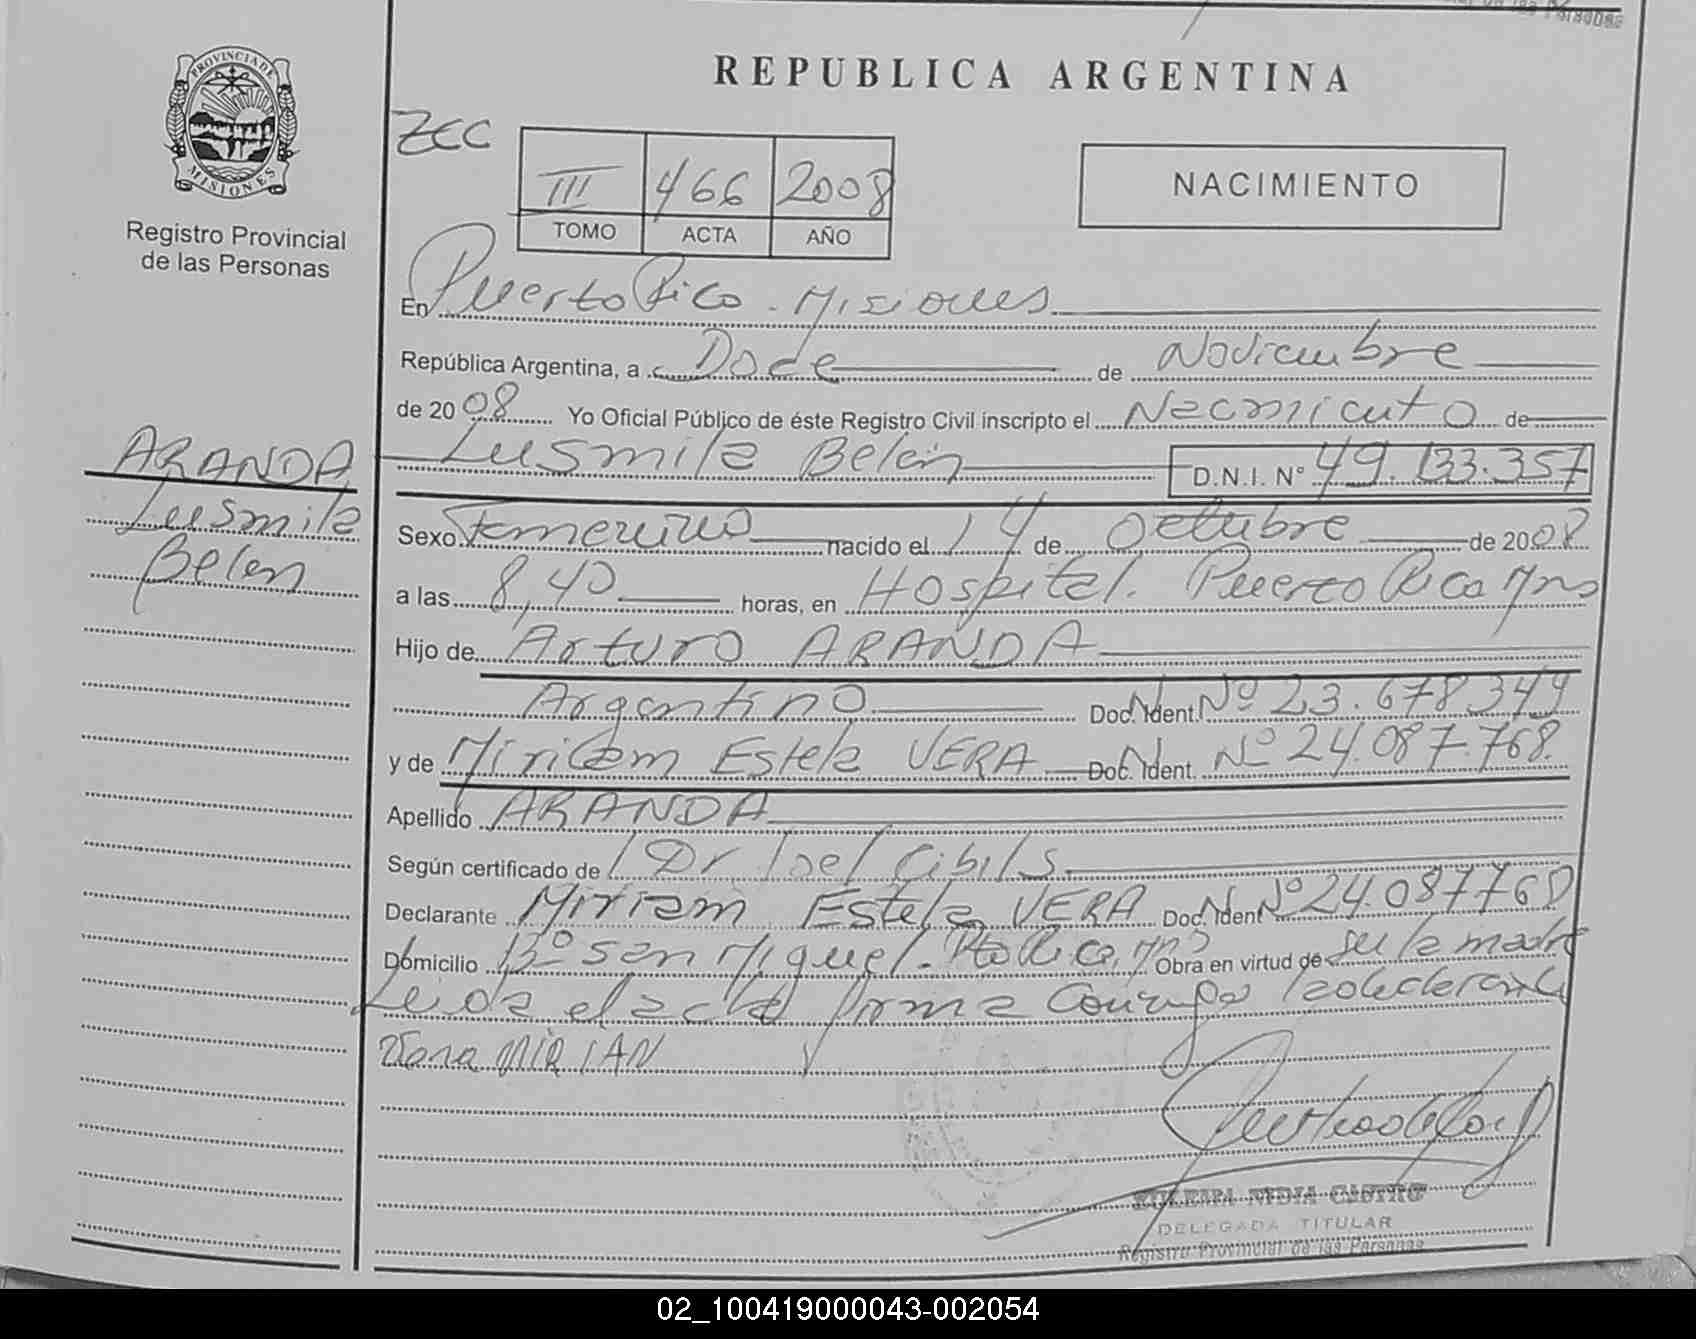 PROVINCIA DE
MISIONES
Registro Provincial
de las Personas
ARANDA
Lusmila
Belén
REPUBLICA ARGENTINA
ZCC
III 466 2008
TOMO ACTA AÑO
NACIMIENTO
En Puerto Rico - Misiones
República Argentina, a Doce de Noviembre
de 2008 Yo Oficial Público de éste Registro Civil inscripto el Nacimiento de
Lusmila Belén D.N.I. N° 49.133.357
Sexo Femenino nacido el 14 de Octubre de 2008
a las 8,40 horas, en Hospital. Puerto Rico Mns
Hijo de Arturo ARANDA
Argentino Doc. Ident. Nº 23.678.349
y de Miriam Estela VERA Doc. Ident. Nº 24.087.768.
Apellido ARANDA
Según certificado de Dr. Joel Cibils
Declarante Miriam Estela VERA Doc. Ident Nº 24.087768
Domicilio Bº San Miguel. Pto Rico, Mns Obra en virtud de ser la madre
Leida el acta firma conmigo la declarante
MIRIAN
ZULEMA NIDIA CASTRO
DELEGADA TITULAR
Registro Provincial de las Personas
02_100419000043-002054